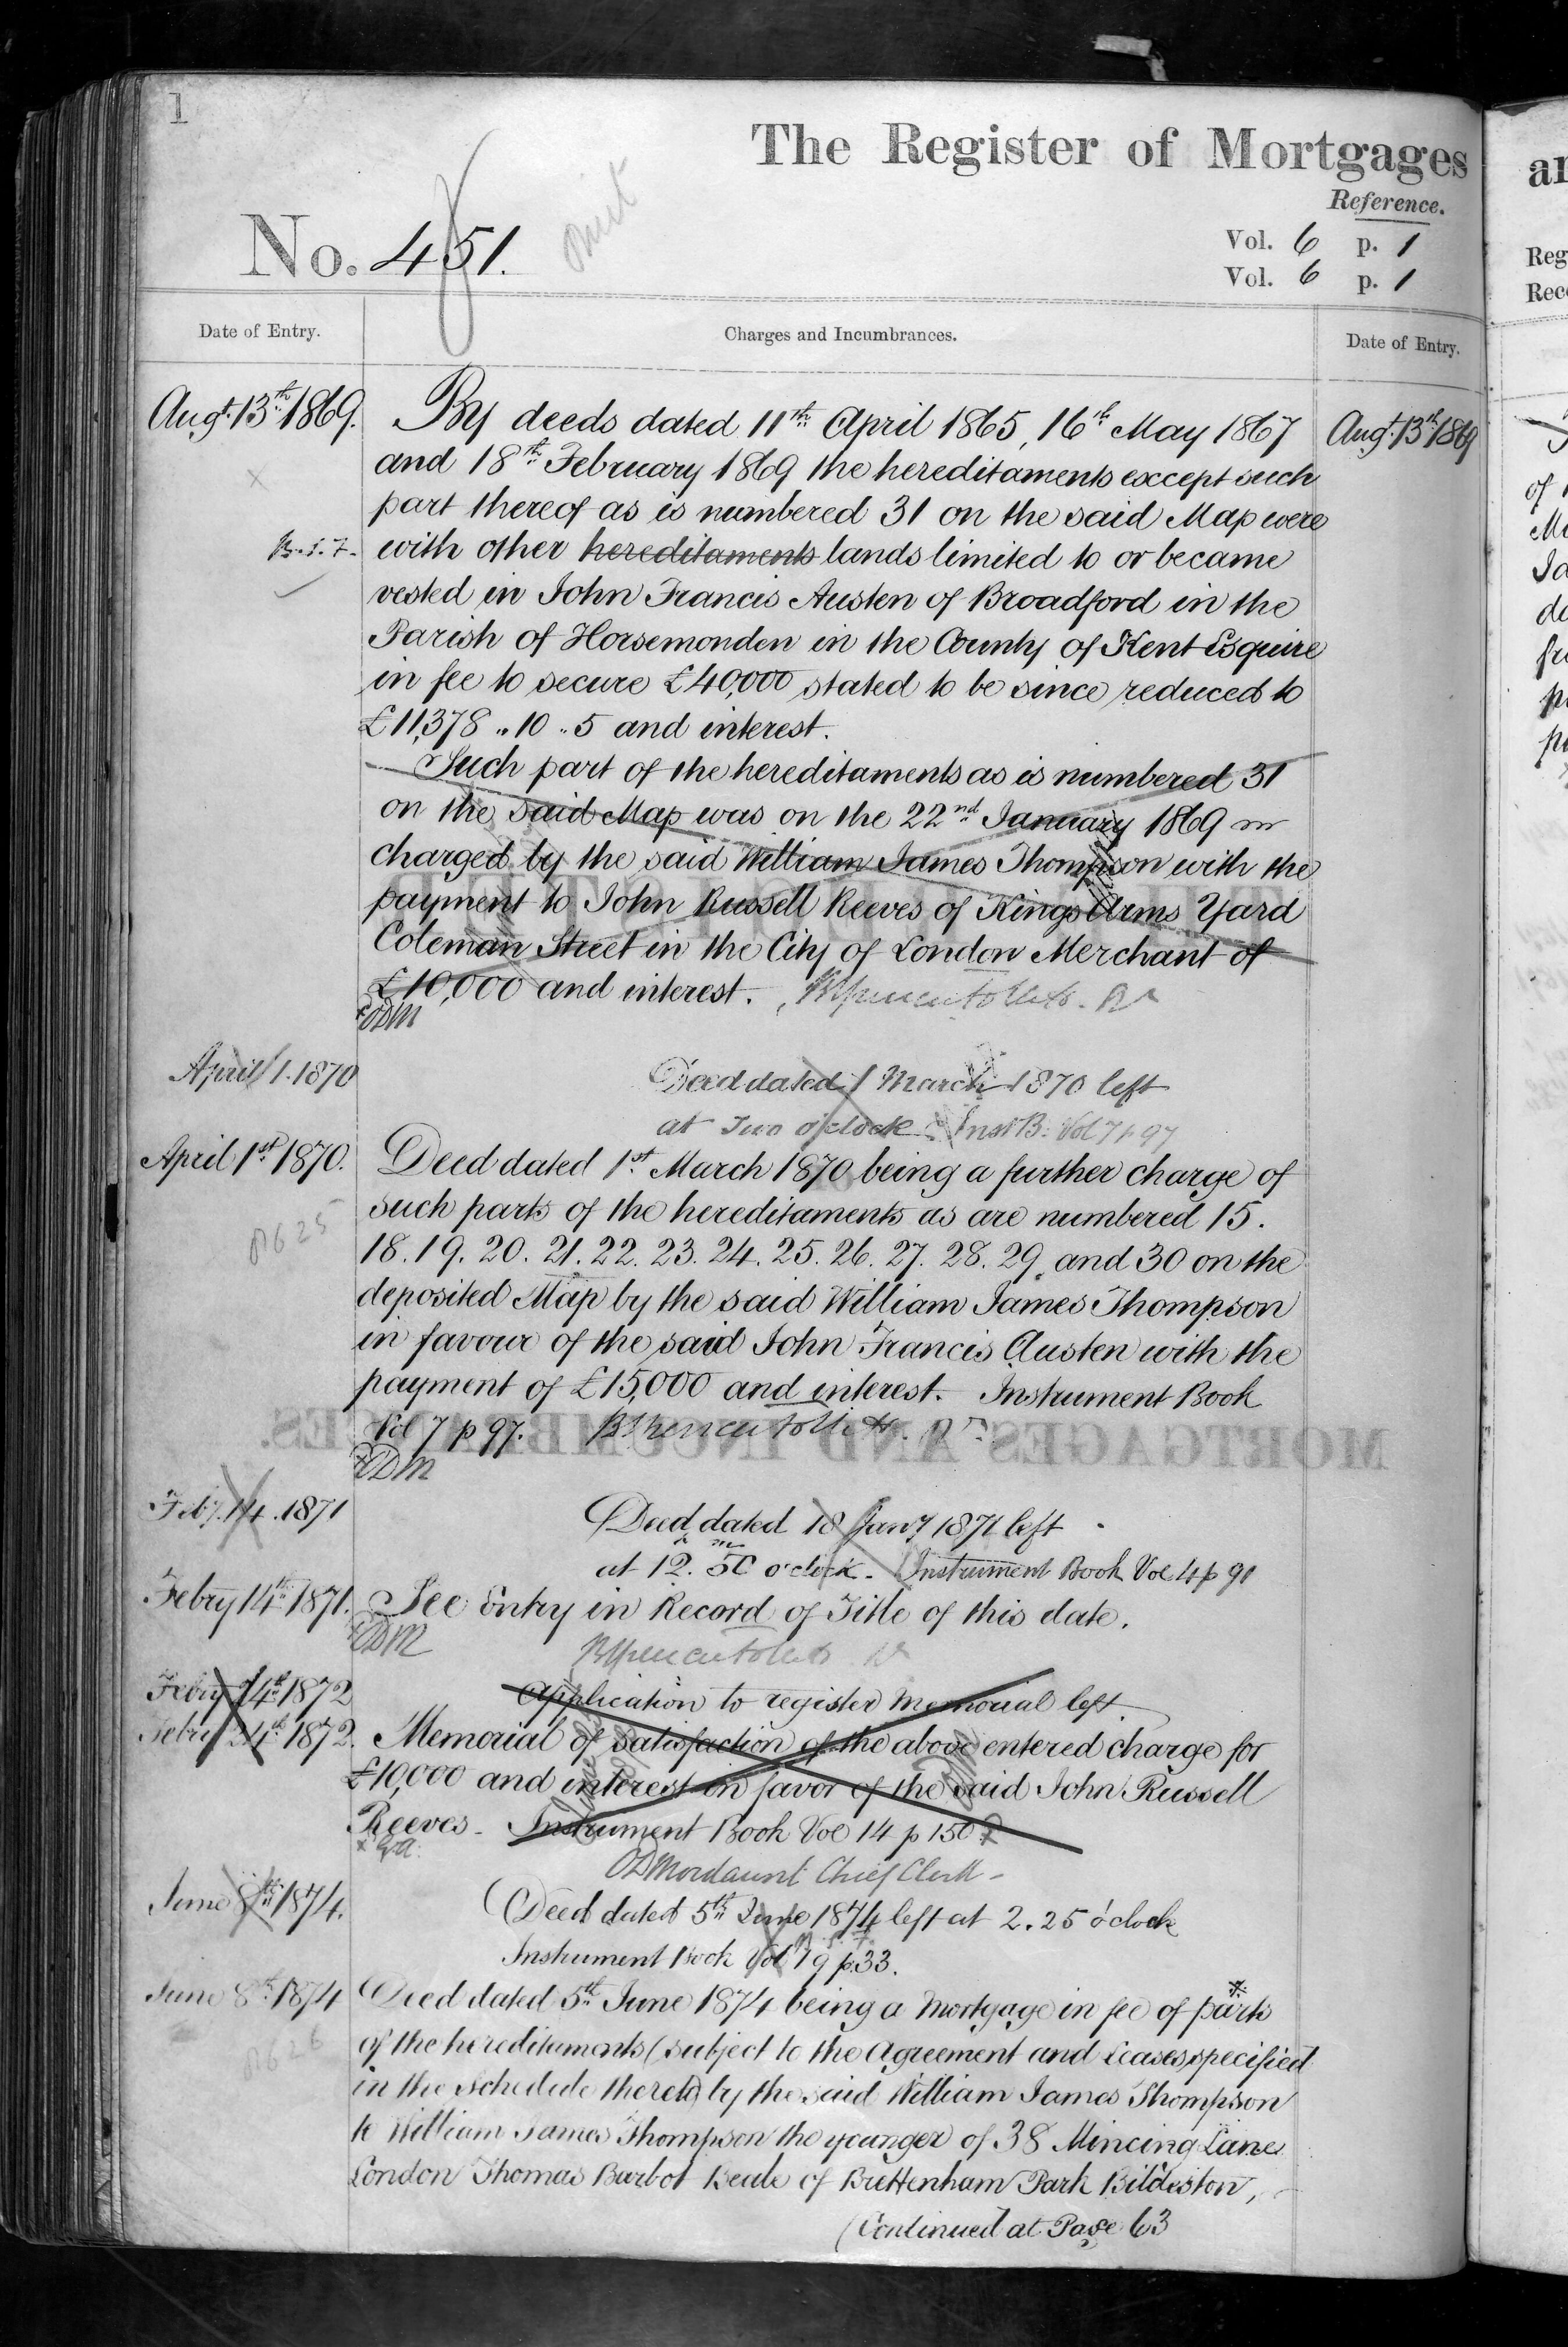 1
The Register of Mortgages
Reference.
No. 451.
omit
Vol. 6 p. 1
Vol. 6 p. 1
Date of Entry.
Charges and Incumbrances.
Date of Entry.
Augt. 13th 1869.
By deeds dated 11th April 1865, 16th May 1867
Augt. 13th 1869
and 18th February 1869 the hereditaments except such
part thereof as is numbered 31 on the said Map were
with other hereditaments lands limited to or became
vested in John Francis Austen of Broadford in the
Parish of Horsemonden in the County of Kent Esquire
in fee to secure £40,000 stated to be since reduced to
£11,378 .. 10 .. 5 and interest.
Such part of the hereditaments as is numbered 31
on the said Map was on the 22nd January 1869
charged by the said William James Thompson with the
payment to John Russell Reeves of Kings Arms Yard
Coleman Street in the City of London Merchant of
£10,000 and interest.
ODM
April 1. 1870
Deed dated 1 March 1870 left
at Two o'clock Inst B: Vol 7 p 97
April 1st 1870.
Deed dated 1st March 1870 being a further charge of
such parts of the hereditaments as are numbered 15.
18. 19. 20. 21. 22. 23. 24. 25. 26. 27. 28. 29. and 30 on the
deposited Map by the said William James Thompson
in favour of the said John Francis Austen with the
payment of £15,000 and interest. Instrument Book
Vol 7 p 97.
ODM
MORTGAGES AND INCUMBRANCES.
Feby. 14. 1871
Deed dated 18 Jany 1871 left
at 12. 50 o'clock. Instrument Book Vol 4 p 90
Febry 14th 1871.
See Entry in Record of Title of this date.
ODM
Febry 14th 1872
Application to register Memorial left.
Febry 24th 1872.
Memorial of satisfaction of the above entered charge for
£10,000 and interest in favor of the said John Russell
Reeves. Instrument Book Vol 14 p 150
ODMordaunt Chief Clerk
June 8th 1874.
Deed dated 5th June 1874 left at 2.25 o'clock
Instrument Book Vol 19 p. 33.
June 8th 1874
Deed dated 5th June 1874 being a Mortgage in fee of parts
of the hereditaments (subject to the Agreement and Leases specified
in the Schedule thereto) by the said William James Thompson
to William James Thompson the younger of 38 Mincing Lane
London Thomas Burbot Beale of Brettenham Park Bildeston,
(Continued at Page 63